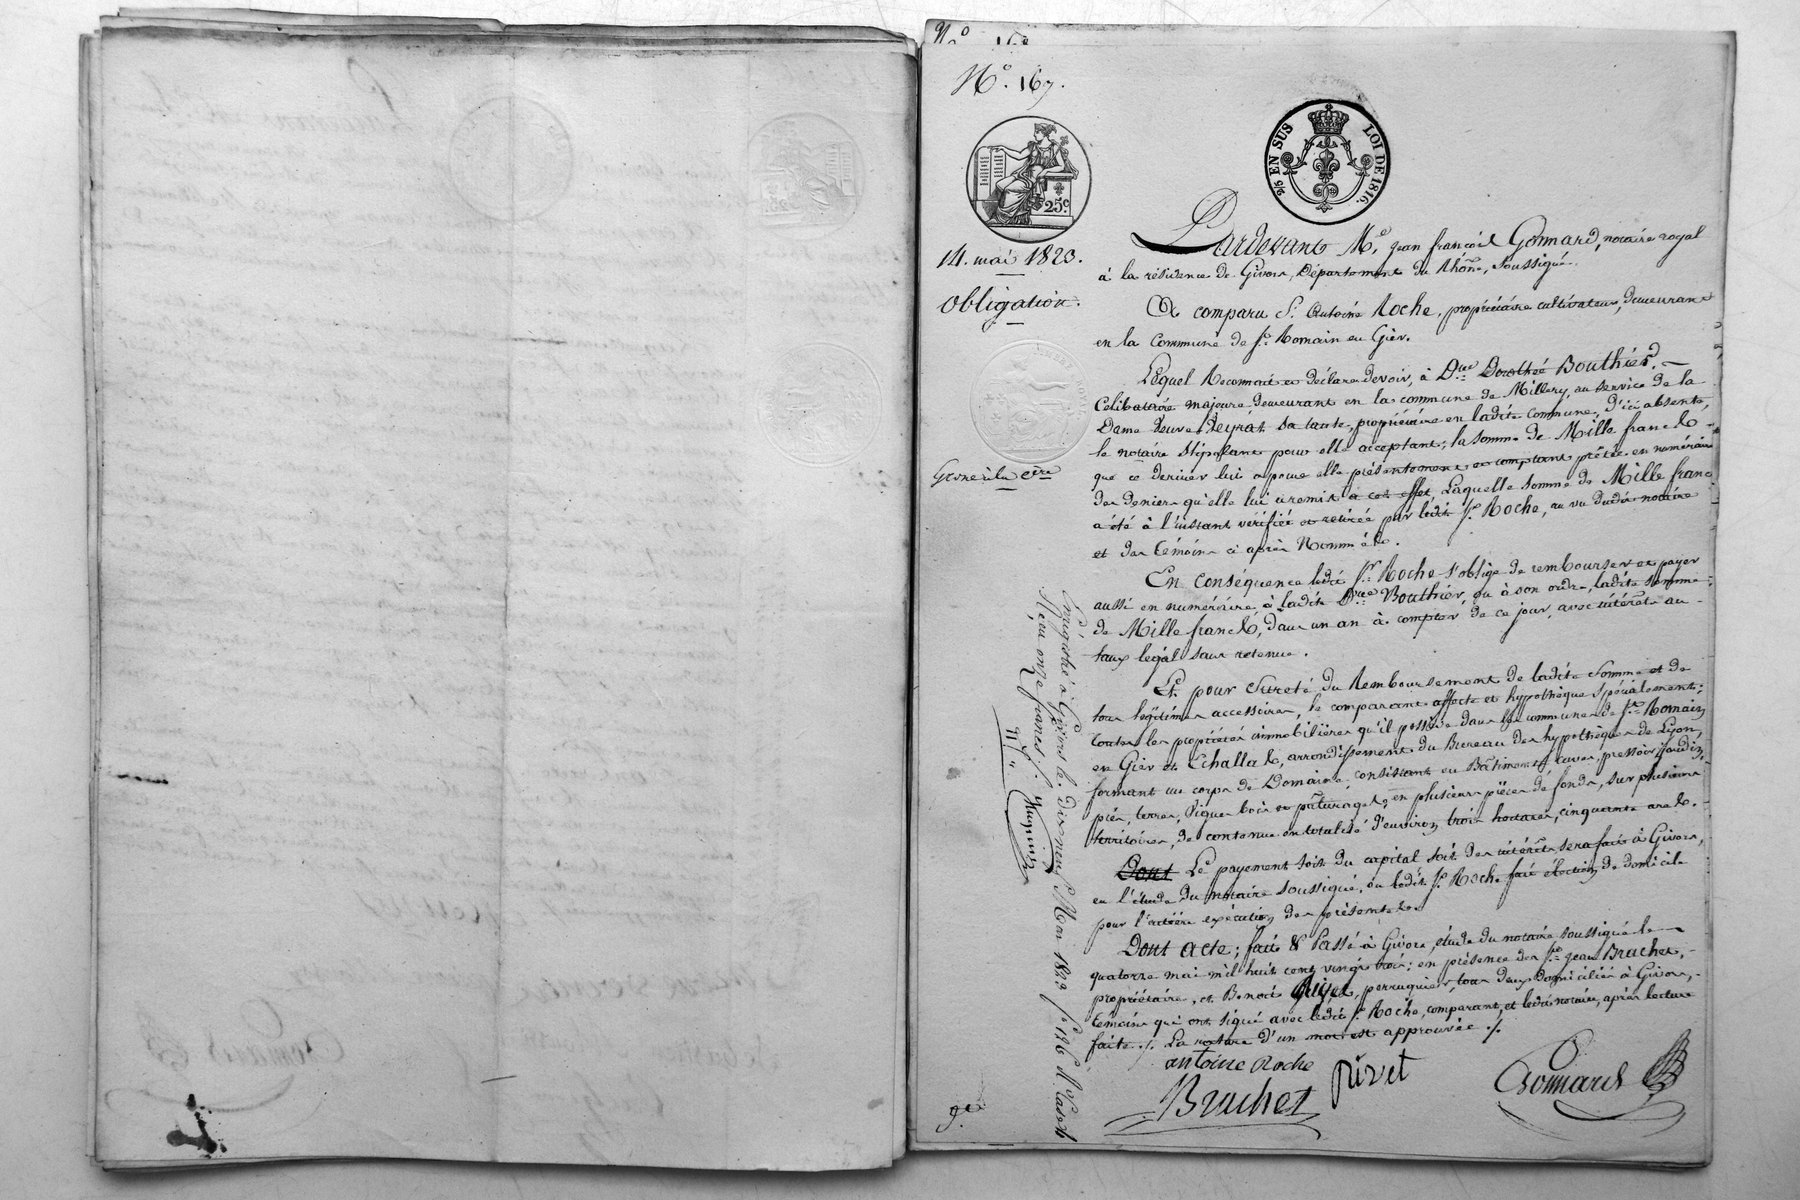 N.o 167.
25c.
EN SUS
LOI DE 1816.
14. mai 1823.
Obligation.
Pardevant M.e jean françois Gonnard, notaire royal
à la résidence de Givors, Département du Rhône, soussigné.
A comparu S.r Antoine Roche, propriétaire cultivateur, demeurant
en la Commune de S.t Romain en Gier.
Lequel Reconnait et déclare devoir, à D.lle Dorothée Bouthier,
Celibataire majeure demeurant en la commune de Millery, au service de la
Dame veuve Peyrat sa tante, propriétaire en ladite commune, d'ici absente,
le notaire stipulant pour elle acceptant; la somme de Mille francs
que ce dernier lui a pour elle présentement et comptant prêtée en numéraire
des deniers qu'elle lui a remis à cet effet, Laquelle somme de Mille francs
a été à l'instant vérifiée et retirée par ledit S.r Roche, au vu dudit notaire
et des témoins ci après Nommés.
En conséquence ledit S.r Roche s'oblige de rembourser et payer
aussi en numéraire, à ladite D.lle Bouthier, ou à son ordre, ladite somme
de Mille francs, dans un an à compter de ce jour, avec intérêts au
taux légal sans retenue.
Et pour sureté du Remboursement de ladite somme et de
tous légitimes accessoires, le comparant affecte et hypothèque spécialement
toutes les propriétés immobilières qu'il possède dans les communes de S.t Romain
en Gier et Echallas, arrondissement du Bureau des hypothèques de Lyon,
formant un corps de Domaine consistant en Bâtiments, caves, pressoir, jardin,
prés, terres, vignes bois et pâturages, en plusieurs pièces de fonds, sur plusieurs
territoires, de contenue en totalité d'environ trois hectares, cinquante ares.
Dont Le payement soit du capital soit des intérêts sera fait à Givors,
en l'étude du notaire soussigné, où ledit S.r Roche fait élection de domicile
pour l'entière exécution des présentes.
Dont acte; fait & Passé à Givors, étude du notaire soussigné le
quatorze mai mil huit cent vingt trois; en présence des S.rs jean Brachet,
propriétaire, et Benoit Rivet, perruquier, tous deux domiciliés à Givors,
témoins qui ont signé avec ledit S.r Roche, comparant, et ledit notaire, après lecture
faite ./. La rature d'un mot est approuvée ./.
antoine Roche
Brachet
rivet
Gonnard
Enregistré à Givors le dix neuf Mai 1823 f.o 126
Reçu onze francs